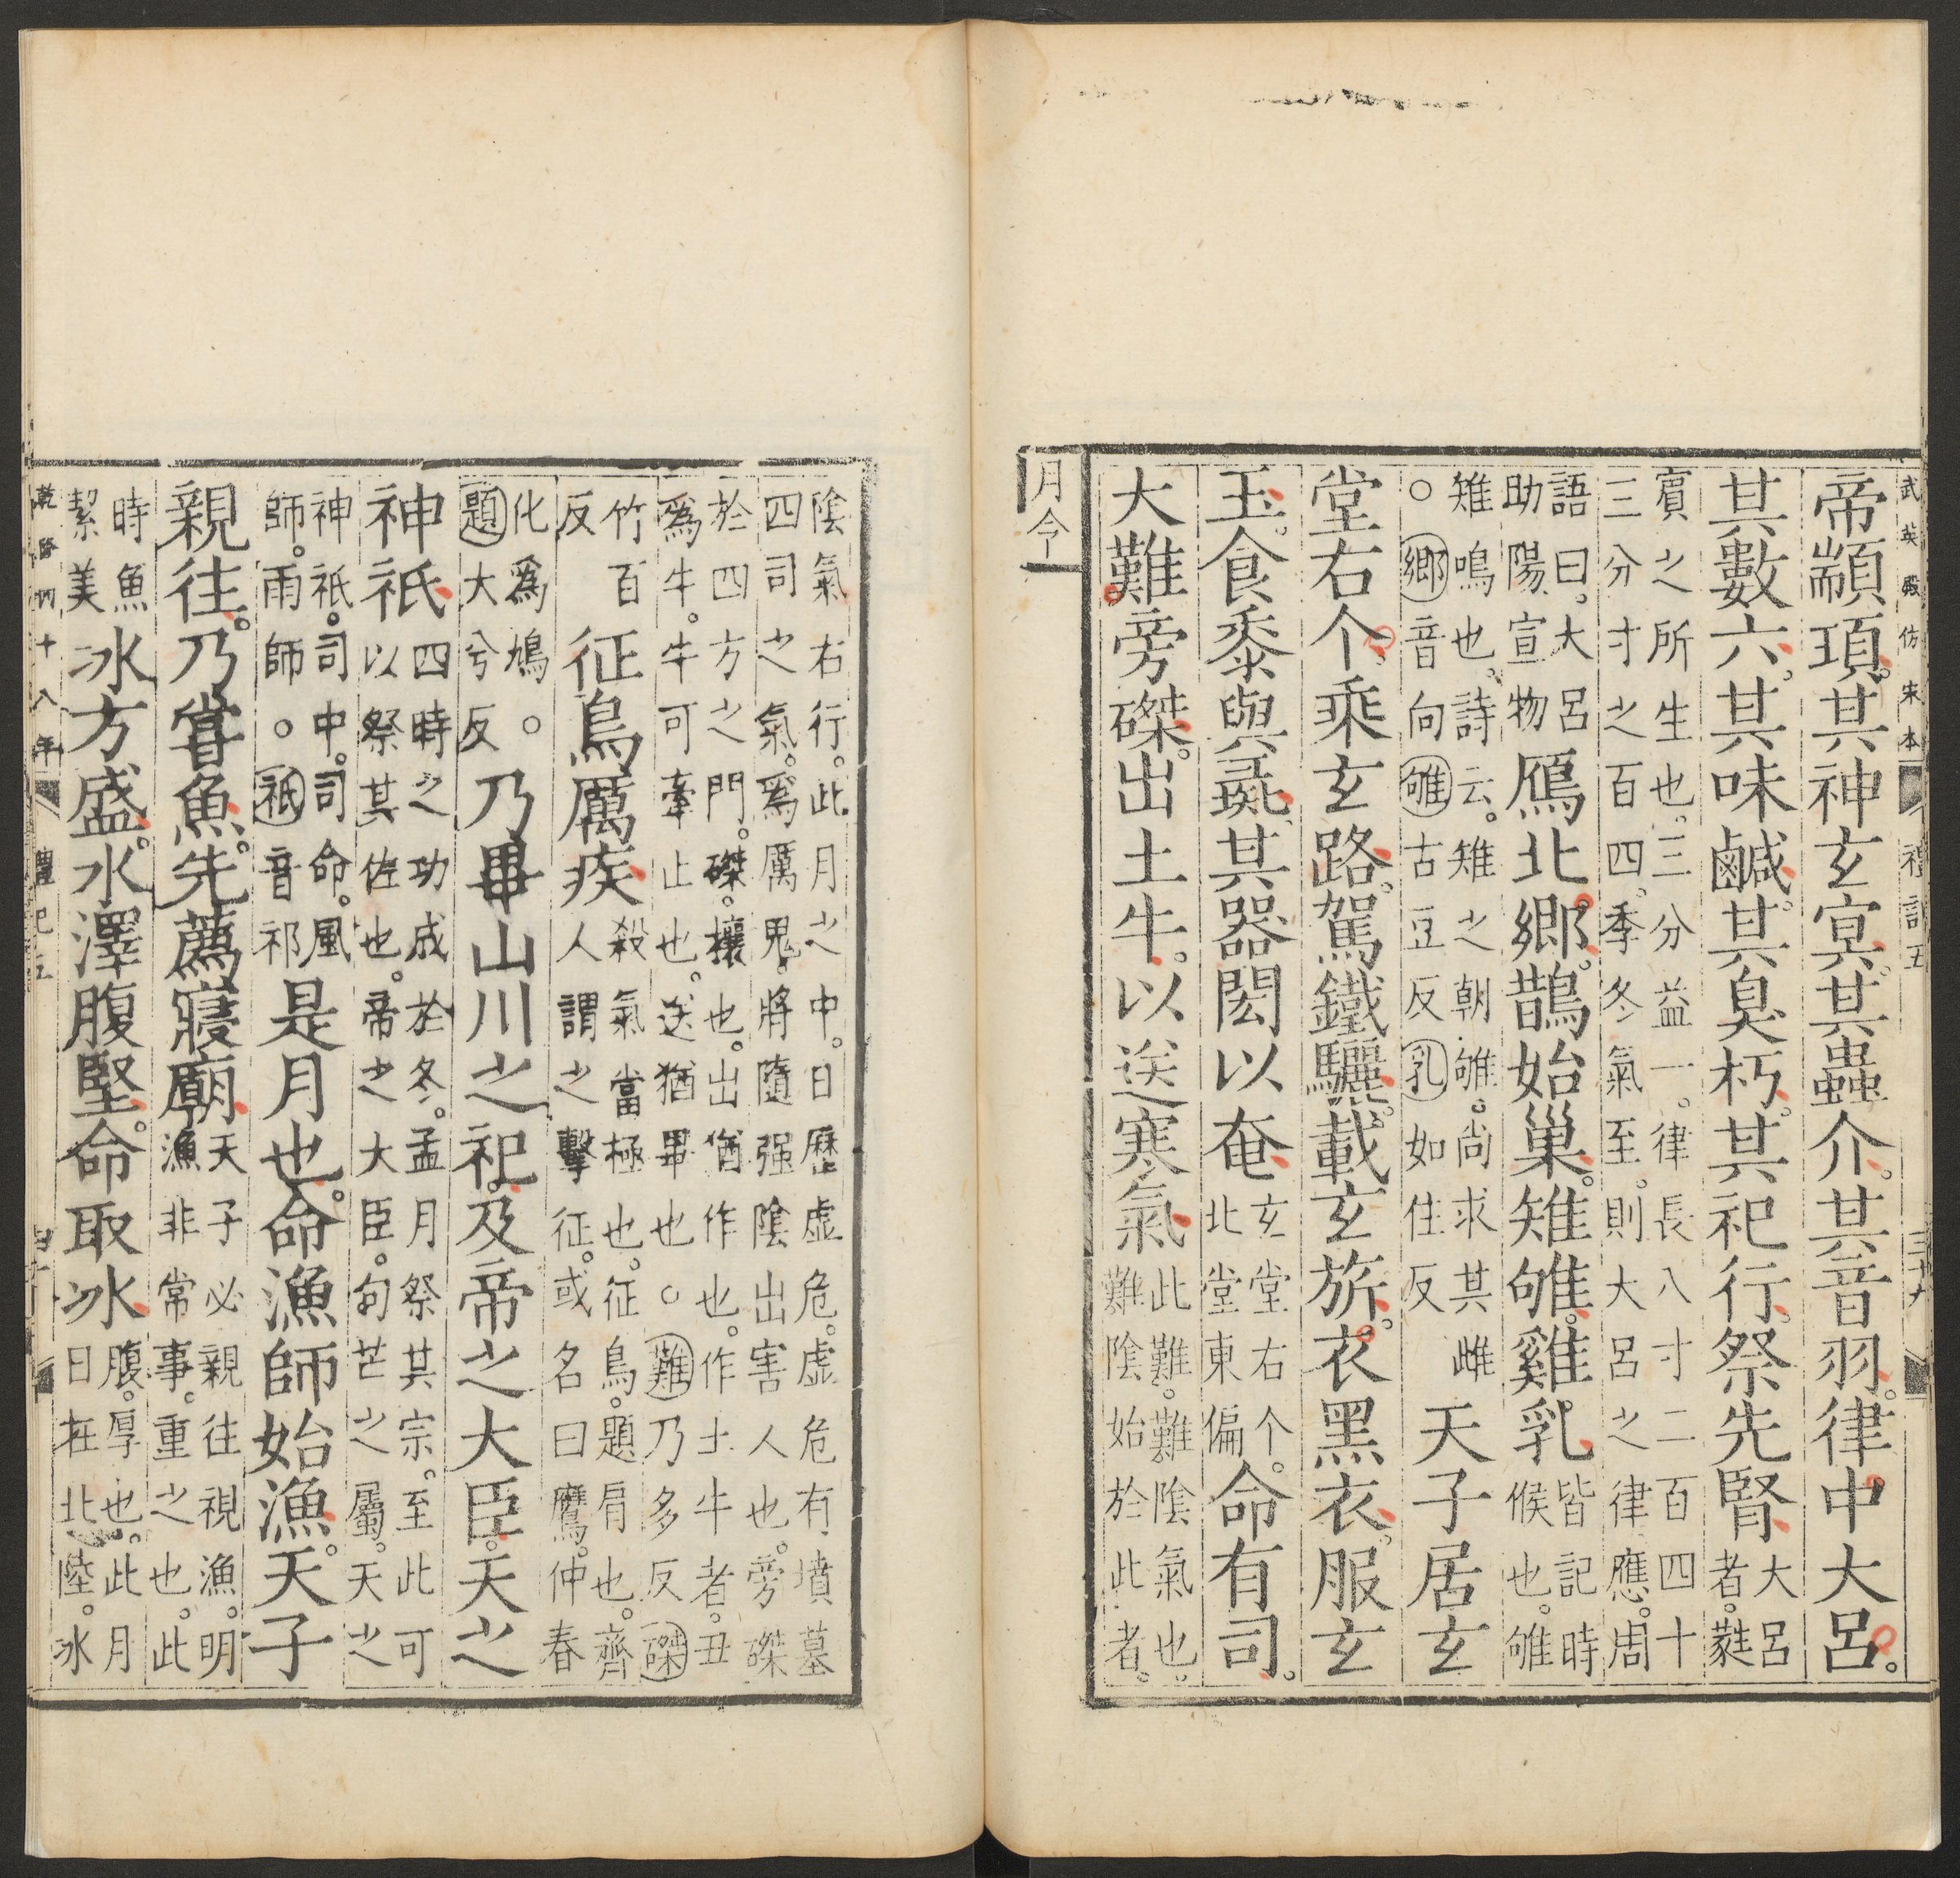 武英殿仿宋本 禮記五 三十九
帝顓頊。其神玄冥。其蟲介。其音羽。律中大呂。
其數六。其味鹹。其臭朽。其祀行。祭先腎。大呂者。蕤
賓之所生也。三分益一。律長八寸二百四十三分寸之百四。季冬氣至。則大呂之律應。周
語曰。大呂助陽宣物鴈北鄉。鵲始巢。雉雊。雞乳。皆記時候也。雊
雉鳴也。詩云。雉之朝雊。尚求其雌○鄉音向雊古豆反乳如住反天子居玄
堂右个。乘玄路。駕鐵驪。載玄旂。衣黑衣。服玄
玉。食黍與彘。其器閎以奄。玄堂右个。北堂東偏命有司。
大難。旁磔。出土牛。以送寒氣。此難。難陰氣也。難陰始於此者。
月令
陰氣右行。此月之中。日歷虛危。虛危有墳墓四司之氣。爲厲鬼。將隨强陰出害人也。旁磔
於四方之門。磔。攘也。出猶作也。作土牛者。丑爲牛。牛可牽止也。送猶畢也○難乃多反磔
竹百反征鳥厲疾。殺氣當極也。征鳥。題肩也。齊人謂之擊征。或名曰鷹。仲春
化爲鳩。○題大兮反乃畢山川之祀。及帝之大臣。天之
神祇。四時之功成於冬。孟月祭其宗。至此可以祭其佐也。帝之大臣。句芒之屬。天之
神祇。司中。司命。風師。雨師。○祇音祁是月也。命漁師始漁。天子
親往。乃嘗魚。先薦寢廟。天子必親往視漁。明漁非常事。重之也。此
時魚絜美冰方盛。水澤腹堅。命取冰。腹。厚也。此月日在北陸。冰
乾隆四十八年 禮記五 四十